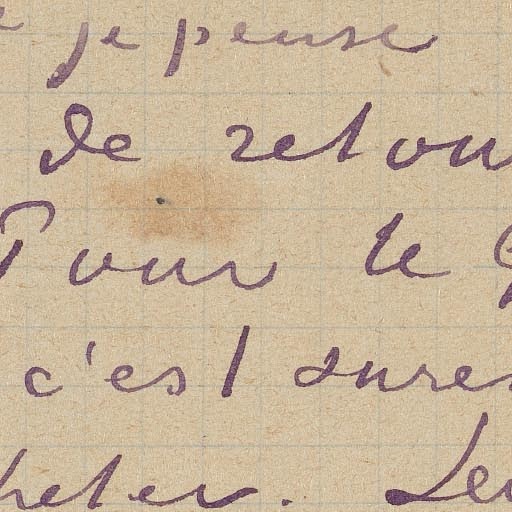 je pense
de retour
Pour le
c'est sures
heter. Leu